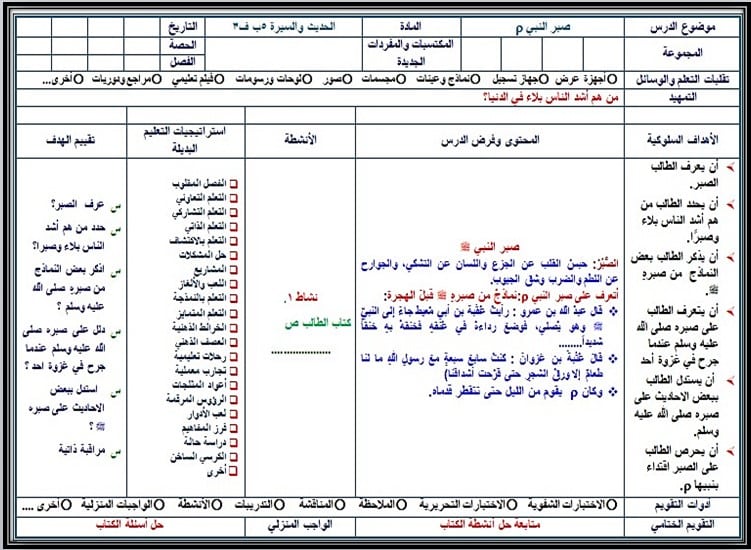 موضوع الدرس
صبر النبي ρ
المادة
الحديث والسيرة ٥ب ف٣
التاريخ
المجموعة
المكتسبات والمفردات
الجديدة
الحصة
الفصل
تقنيات التعلم والوسائل
O أجهزة عرض O جهاز تسجيل O نماذج وعينات O مجسمات O صور O لوحات ورسومات O فيلم تعليمي O مراجع ودوريات O أخرى...
التمهيد
من هم أشد الناس بلاء في الدنيا؟
الأهداف السلوكية
المحتوى وفرض الدرس
الأنشطة
استراتيجيات التعليم
البديلة
تقييم الهدف
أن يعرف الطالب
الصبر.
أن يحدد الطالب من
هم أشد الناس بلاء
وصبرًا.
أن يذكر الطالب بعض
النماذج من صبره
ﷺ.
أن يتعرف الطالب
على صبره صلى الله
عليه وسلم عندما
جرح في غزوة أحد
أن يستدل الطالب
ببعض الاحاديث على
صبره صلى الله عليه
وسلم.
أن يحرص الطالب
على الصبر اقتداء
بنبيها ρ.
صبر النبي ﷺ
الصَّبْرُ: حبسُ القلب عن الجزع واللسان عن التشكي، والجوارح
عن اللطم والضرب وشق الجيوب.
أتعرف على صبر النبي ρ:نماذجُ من صبرِهِ ﷺ قبلَ الهجرة:
❖ قال عبدُ الله بن عمرو : رأيتُ عُقبة بن أبي مُعيط جاءَ إلى النبيِّ
ﷺ وهو يُصلي، فوضعَ رداءهُ في عُنُقِهِ فخنقهُ بِهِ خنقاً
شديداً........
❖ قالَ عُتْبَةُ بن غزوانَ : كنتُ سابعَ سبعةٍ معَ رسولِ اللهِ ما لنا
طعامٌ إلا ورقُ الشجرِ حتى قَرِحَت أشداقُنا)
❖ وكان ρ يقوم من الليل حتى تتفطر قدماه.
نشاط ١.
كتاب الطالب ص
....................
❑ الفصل المقلوب
❑ التعلم التعاوني
❑ التعلم التشاركي
❑ التعلم الذاتي
❑ التعلم بالاكتشاف
❑ حل المشكلات
❑ المشاريع
❑ اللعب والألغاز
❑ التعلم بالنمذجة
❑ التعلم المتمايز
❑ الخرائط الذهنية
❑ العصف الذهني
❑ رحلات تعليمية
❑ تجارب معملية
❑ أعواد المثلجات
❑ الرؤوس المرقمة
❑ لعب الأدوار
❑ فرز المفاهيم
❑ دراسة حالة
❑ الكرسي الساخن
❑ أخرى
س عرف الصبر؟
س حدد من هم أشد
الناس بلاء وصبرا؟
س اذكر بعض النماذج
من صبره صلى الله
عليه وسلم ؟
س دلل على صبره صلى
الله عليه وسلم عندما
جرح في غزوة احد ؟
س استدل ببعض
الاحاديث على صبره
ﷺ ؟
س مراقبة ذاتية
أدوات التقويم
O الاختبارات الشفوية O الاختبارات التحريرية O الملاحظة O المناقشة O التدريبات O الأنشطة O الواجبات المنزلية O أخرى ....
التقويم الختامي
متابعة حل أنشطة الكتاب
الواجب المنزلي
حل أسئلة الكتاب